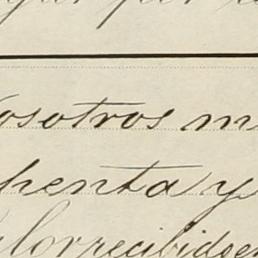 por
osotros m
henta y
alor recibido en